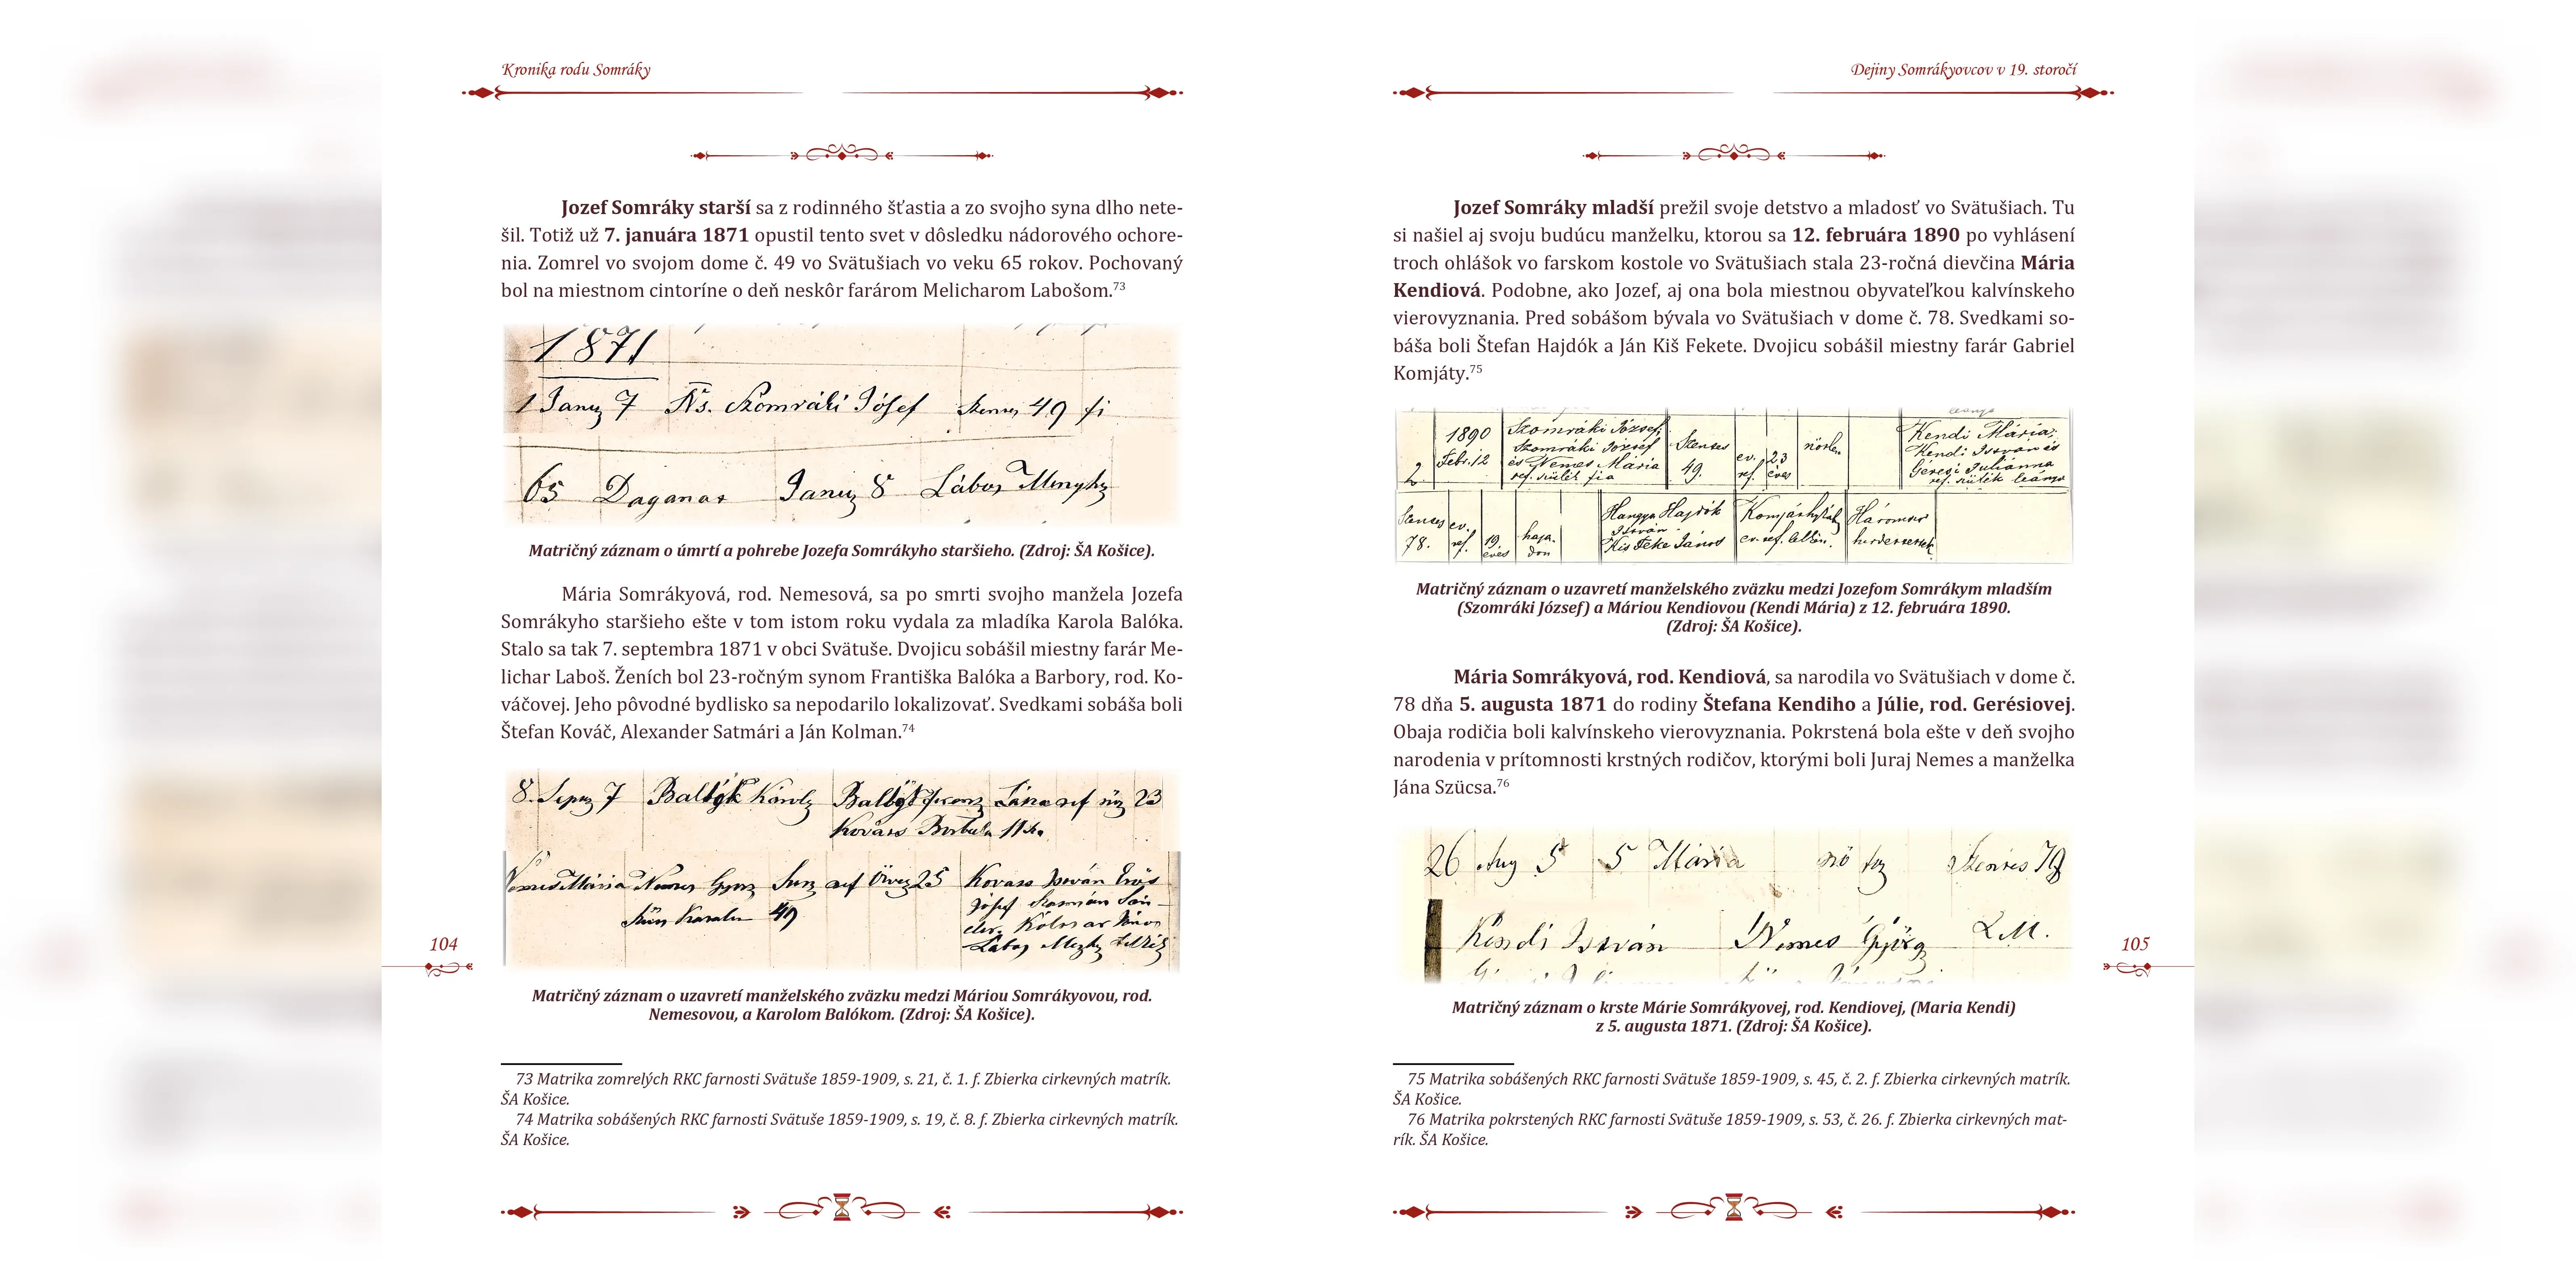 Kronika rodu Somráky
Jozef Somráky starší sa z rodinného šťastia a zo svojho syna dlho nete-
šil. Totiž už 7. januára 1871 opustil tento svet v dôsledku nádorového ochore-
nia. Zomrel vo svojom dome č. 49 vo Svätušiach vo veku 65 rokov. Pochovaný
bol na miestnom cintoríne o deň neskôr farárom Melicharom Labošom.73
1871
1 7 Ns. Szomráki Jósef 49
65 Daganat 8 Lábos
Matričný záznam o úmrtí a pohrebe Jozefa Somrákyho staršieho. (Zdroj: ŠA Košice).
Mária Somrákyová, rod. Nemesová, sa po smrti svojho manžela Jozefa
Somrákyho staršieho ešte v tom istom roku vydala za mladíka Karola Balóka.
Stalo sa tak 7. septembra 1871 v obci Svätuše. Dvojicu sobášil miestny farár Me-
lichar Laboš. Ženích bol 23-ročným synom Františka Balóka a Barbory, rod. Ko-
váčovej. Jeho pôvodné bydlisko sa nepodarilo lokalizovať. Svedkami sobáša boli
Štefan Kováč, Alexander Satmári a Ján Kolman.74
8. 7 ref 23
Nemes Mária Nemes ref 25 Kovács István
49 Jósef
János
Lábos
Matričný záznam o uzavretí manželského zväzku medzi Máriou Somrákyovou, rod.
Nemesovou, a Karolom Balókom. (Zdroj: ŠA Košice).
73 Matrika zomrelých RKC farnosti Svätuše 1859-1909, s. 21, č. 1. f. Zbierka cirkevných matrík.
ŠA Košice.
74 Matrika sobášených RKC farnosti Svätuše 1859-1909, s. 19, č. 8. f. Zbierka cirkevných matrík.
ŠA Košice.
104
Dejiny Somrákyovcov v 19. storočí
Jozef Somráky mladší prežil svoje detstvo a mladosť vo Svätušiach. Tu
si našiel aj svoju budúcu manželku, ktorou sa 12. februára 1890 po vyhlásení
troch ohlášok vo farskom kostole vo Svätušiach stala 23-ročná dievčina Mária
Kendiová. Podobne, ako Jozef, aj ona bola miestnou obyvateľkou kalvínskeho
vierovyznania. Pred sobášom bývala vo Svätušiach v dome č. 78. Svedkami so-
báša boli Štefan Hajdók a Ján Kiš Fekete. Dvojicu sobášil miestny farár Gabriel
Komjáty.75
1890 Szomráki József, Kendi Mária,
Febr. 12 Szomráki József Szentes ev. 23 nőtlen Kendi István és
2 és Nemes Mária 49. ref. éves Géresi Juliánna
ref. szülők fia ref. szülők leánya
Szentes ev. haja- Hangya Hajdók
78. ref. 19 éves don István
Kis Feke János
Matričný záznam o uzavretí manželského zväzku medzi Jozefom Somrákym mladším
(Szomráki József) a Máriou Kendiovou (Kendi Mária) z 12. februára 1890.
(Zdroj: ŠA Košice).
Mária Somrákyová, rod. Kendiová, sa narodila vo Svätušiach v dome č.
78 dňa 5. augusta 1871 do rodiny Štefana Kendiho a Júlie, rod. Gerésiovej.
Obaja rodičia boli kalvínskeho vierovyznania. Pokrstená bola ešte v deň svojho
narodenia v prítomnosti krstných rodičov, ktorými boli Juraj Nemes a manželka
Jána Szücsa.76
26 Aug 5 5 Mária nő
Kendi István Nemes György L. M.
Matričný záznam o krste Márie Somrákyovej, rod. Kendiovej, (Maria Kendi)
z 5. augusta 1871. (Zdroj: ŠA Košice).
75 Matrika sobášených RKC farnosti Svätuše 1859-1909, s. 45, č. 2. f. Zbierka cirkevných matrík.
ŠA Košice.
76 Matrika pokrstených RKC farnosti Svätuše 1859-1909, s. 53, č. 26. f. Zbierka cirkevných mat-
rík. ŠA Košice.
105